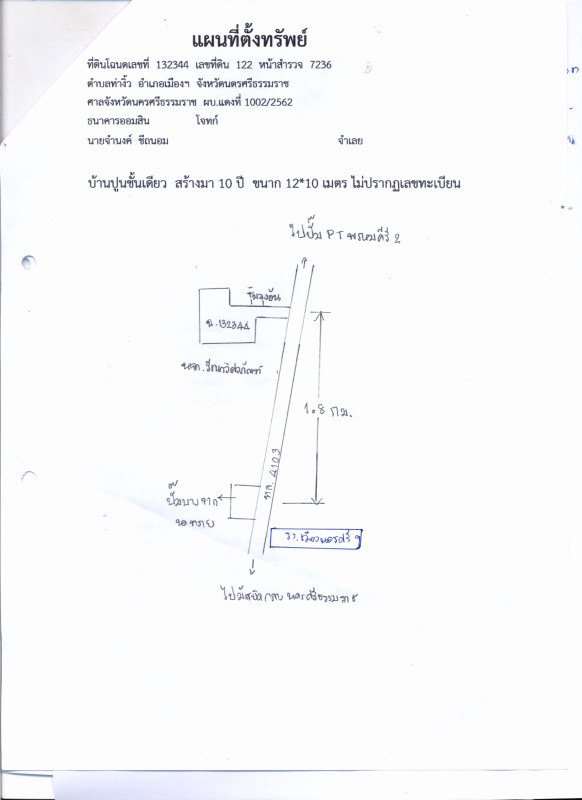 แผนที่ตั้งทรัพย์
ที่ดินโฉนดเลขที่ 132344 เลขที่ดิน 122 หน้าสำรวจ 7236
ตำบลท่างิ้ว อำเภอเมืองฯ จังหวัดนครศรีธรรมราช
ศาลจังหวัดนครศรีธรรมราช ผบ.แดงที่ 1002/2562
ธนาคารออมสิน โจทก์
นายจำนงค์ ชีถนอม จำเลย
บ้านปูนชั้นเดียว สร้างมา 10 ปี ขนาด 12*10 เมตร ไม่ปรากฏเลขทะเบียน
ไปปั๊ม PT พรหมคีรี 2
ซุ้มลุงฉัน
ฉ.132344
1.8 กม.
ทล. 4103
ปั๊มบางจาก